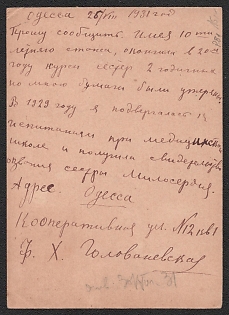 Одесса 26/VIII 1931 год
Прошу сообщить. Имея 10 ти
летнего стажа, окончила в 20 м
году курсы сестер 2 годичные
но мною бумаги были утеряны.
В 1929 году я подвергалась
испытании при медицинск.
школе и получила свидетельство
звания сестры Милосердия.
Адрес Одесса
Кооперативная ул. №12 кв 1
Ф. Х. Головановская